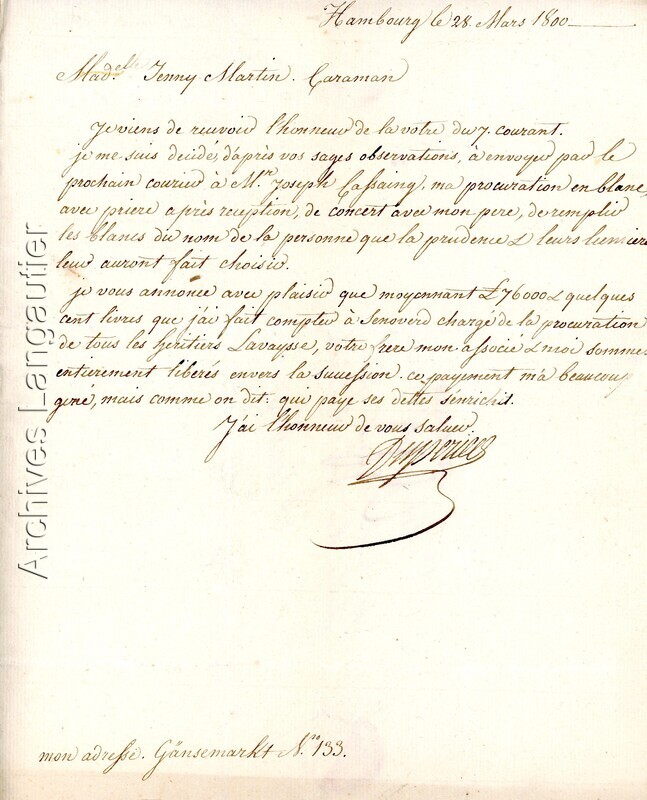 Hambourg le 28. Mars 1800
Mad.elle Jenny Martin. Caraman
Je viens de recevoir l'honneur de la votre du 7. courant.
je me suis decidé, d'après vos sages observations, à envoyer par le
prochain courier à M.r Joseph Cassaing, ma procuration en blanc,
avec priere après reception, de concert avec mon pere, de remplir
les blancs du nom de la personne que la prudence & leurs lumieres
leur auront fait choisir.
je vous annonce avec plaisir que moyennant £76000 & quelques
cent livres que j'ai fait compter à Senoverd chargé de la procuration
de tous les heritiers Lavaysse, votre frere mon associé & moi sommes
entierement liberés envers la sucession. ce payment m'a beaucoup
gené, mais comme on dit: que paye ses dettes s'enrichit.
J'ai l'honneur de vous saluer.
mon adresse. Gänsemarkt N.ro 133.
Archives Langautier